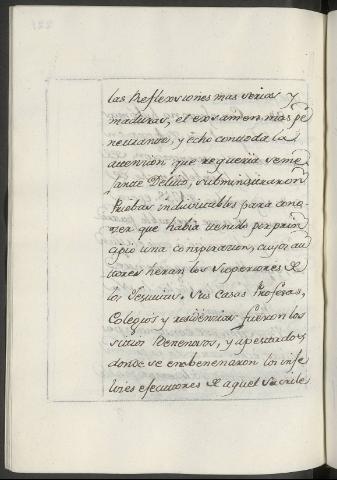 las Reflexsiones mas serias y
maduras, el exsamen mas pe
netrante, y echo con toda la
attencion que requeria seme
Jante Delito, subministraron
Pruebas indubitables para cono-
zer que habia tenido por prin
cipio una conspirazion, cuyos au
tores heran los Superiores de
los Jesuitas, Sus Casas Profesas,
Colegios y residencias fueron los
sitios Benenosos, y apestados
donde se embenenaron los infe
lizes ejecutores de aquel Sacrile